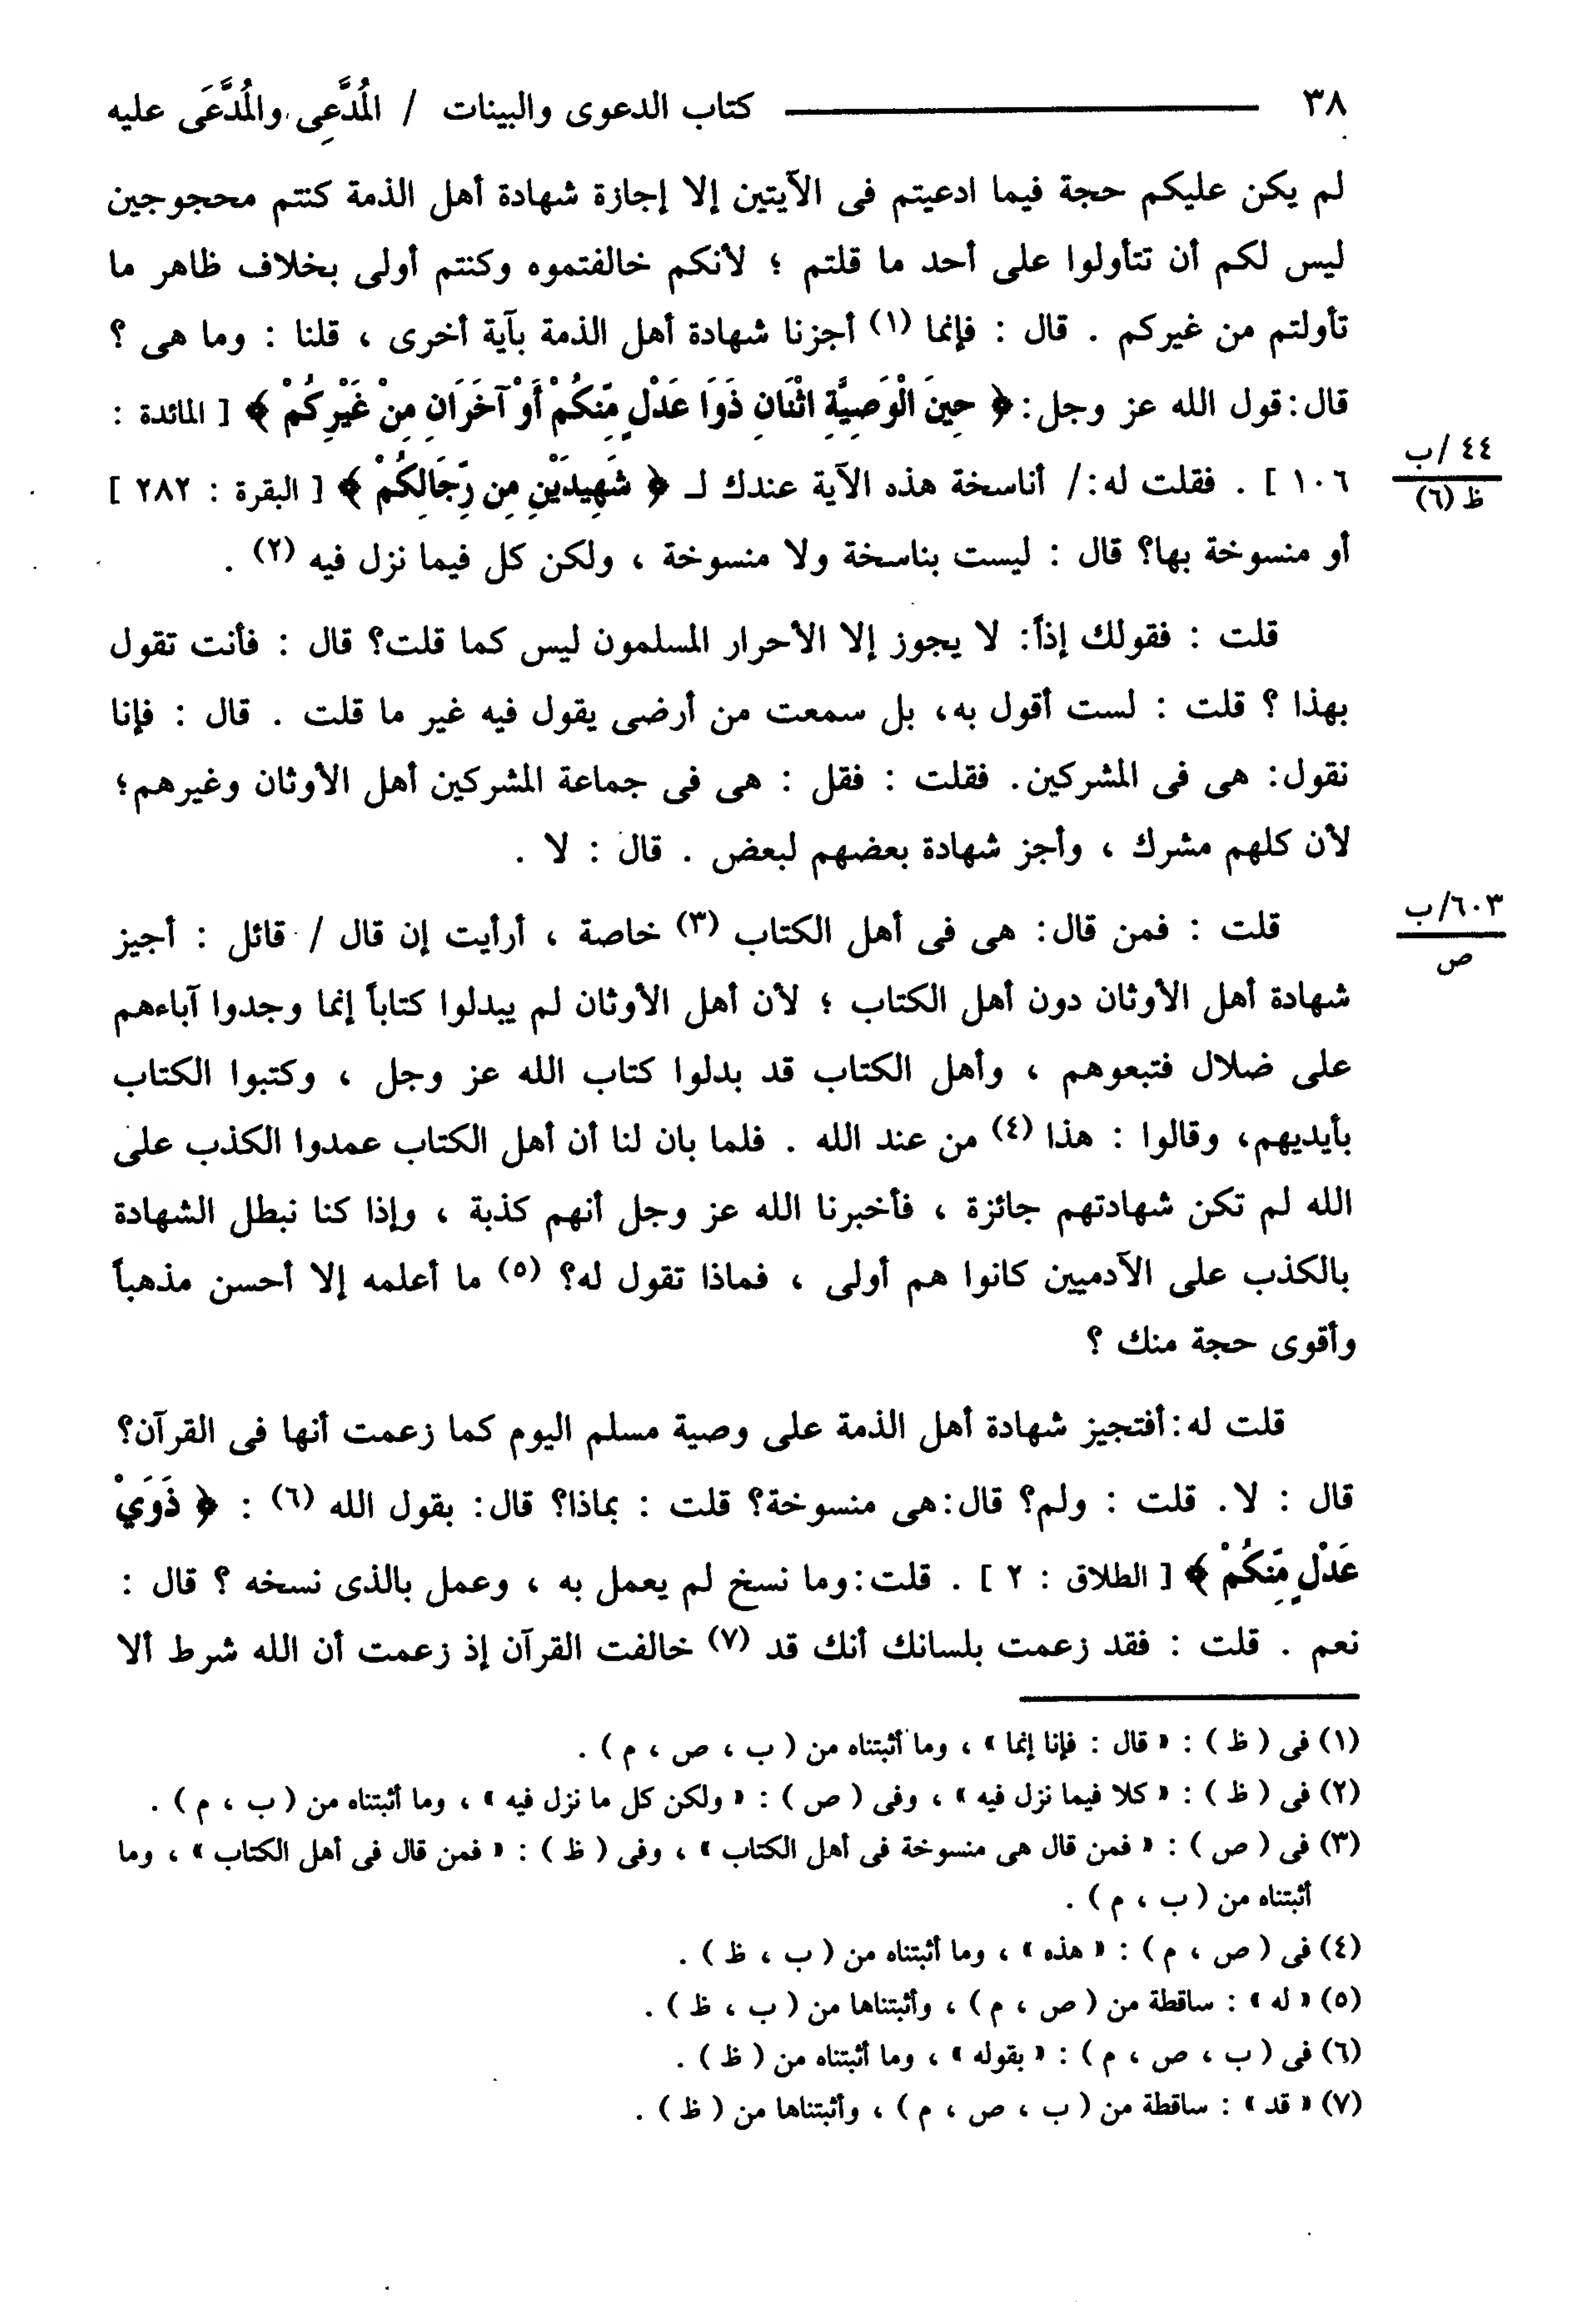 ٣٨ كتاب الدعوى والبينات / المُدَّعِى والمُدَّعَى عليه
لم يكن عليكم حجة فيما ادعيتم فى الآيتين إلا إجازة شهادة أهل الذمة كنتم محجوجين
ليس لكم أن تتأولوا على أحد ما قلتم ؛ لأنكم خالفتموه وكنتم أولى بخلاف ظاهر ما
تأولتم من غيركم . قال : فإنما (١) أجزنا شهادة أهل الذمة بآية أخرى ، قلنا : وما هى ؟
قال:قول الله عز وجل: ﴿ حِينَ الْوَصِيَّةِ اثْنَانِ ذَوَا عَدْلٍ مِّنكُمْ أَوْ آخَرَانِ مِنْ غَيْرِكُمْ ﴾ [ المائدة :
٤٤ /ب
١٠٦ ] . فقلت له:/ أناسخة هذه الآية عندك لـ ﴿ شَهِيدَيْنِ مِن رِّجَالِكُمْ ﴾ [ البقرة : ٢٨٢ ]
ظ (٦)
أو منسوخة بها؟ قال : ليست بناسخة ولا منسوخة ، ولكن كل فيما نزل فيه (٢) .
قلت : فقولك إذاً: لا يجوز إلا الأحرار المسلمون ليس كما قلت؟ قال : فأنت تقول
بهذا ؟ قلت : لست أقول به، بل سمعت من أرضى يقول فيه غير ما قلت . قال : فإنا
نقول: هى فى المشركين. فقلت : فقل : هى فى جماعة المشركين أهل الأوثان وغيرهم؛
لأن كلهم مشرك ، وأجز شهادة بعضهم لبعض . قال : لا .
٦٠٣/ب
قلت : فمن قال: هى فى أهل الكتاب (٣) خاصة ، أرأيت إن قال / قائل : أجيز
ص
شهادة أهل الأوثان دون أهل الكتاب ؛ لأن أهل الأوثان لم يبدلوا كتاباً إنما وجدوا آباءهم
على ضلال فتبعوهم ، وأهل الكتاب قد بدلوا كتاب الله عز وجل ، وكتبوا الكتاب
بأيديهم، وقالوا : هذا (٤) من عند الله . فلما بان لنا أن أهل الكتاب عمدوا الكذب على
الله لم تكن شهادتهم جائزة ، فأخبرنا الله عز وجل أنهم كذبة ، وإذا كنا نبطل الشهادة
بالكذب على الآدميين كانوا هم أولى ، فماذا تقول له؟ (٥) ما أعلمه إلا أحسن مذهباً
وأقوى حجة منك ؟
قلت له:أفتجيز شهادة أهل الذمة على وصية مسلم اليوم كما زعمت أنها فى القرآن؟
قال : لا. قلت : ولم؟ قال:هى منسوخة؟ قلت : بماذا؟ قال: بقول الله (٦) : ﴿ ذَوَيْ
عَدْلٍ مِّنكُمْ ﴾ [ الطلاق : ٢ ] . قلت:وما نسخ لم يعمل به ، وعمل بالذى نسخه ؟ قال :
نعم . قلت : فقد زعمت بلسانك أنك قد (٧) خالفت القرآن إذ زعمت أن الله شرط ألا
(١) فى ( ظ ) : « قال : فإنا إنما » ، وما أثبتناه من ( ب ، ص ، م ) .
(٢) فى ( ظ ) : « كلا فيما نزل فيه » ، وفى ( ص ) : « ولكن كل ما نزل فيه » ، وما أثبتناه من ( ب ، م ) .
(٣) فى ( ص ) : « فمن قال هى منسوخة فى أهل الكتاب » ، وفى ( ظ ) : « فمن قال فى أهل الكتاب » ، وما
أثبتناه من ( ب ، م ) .
(٤) فى ( ص ، م ) : « هذه » ، وما أثبتناه من ( ب ، ظ ) .
(٥) « له » : ساقطة من ( ص ، م ) ، وأثبتناها من ( ب ، ظ ) .
(٦) فى ( ب ، ص ، م ) : « بقوله » ، وما أثبتناه من ( ظ ) .
(٧) « قد » : ساقطة من ( ب ، ص ، م ) ، وأثبتناها من ( ظ ) .